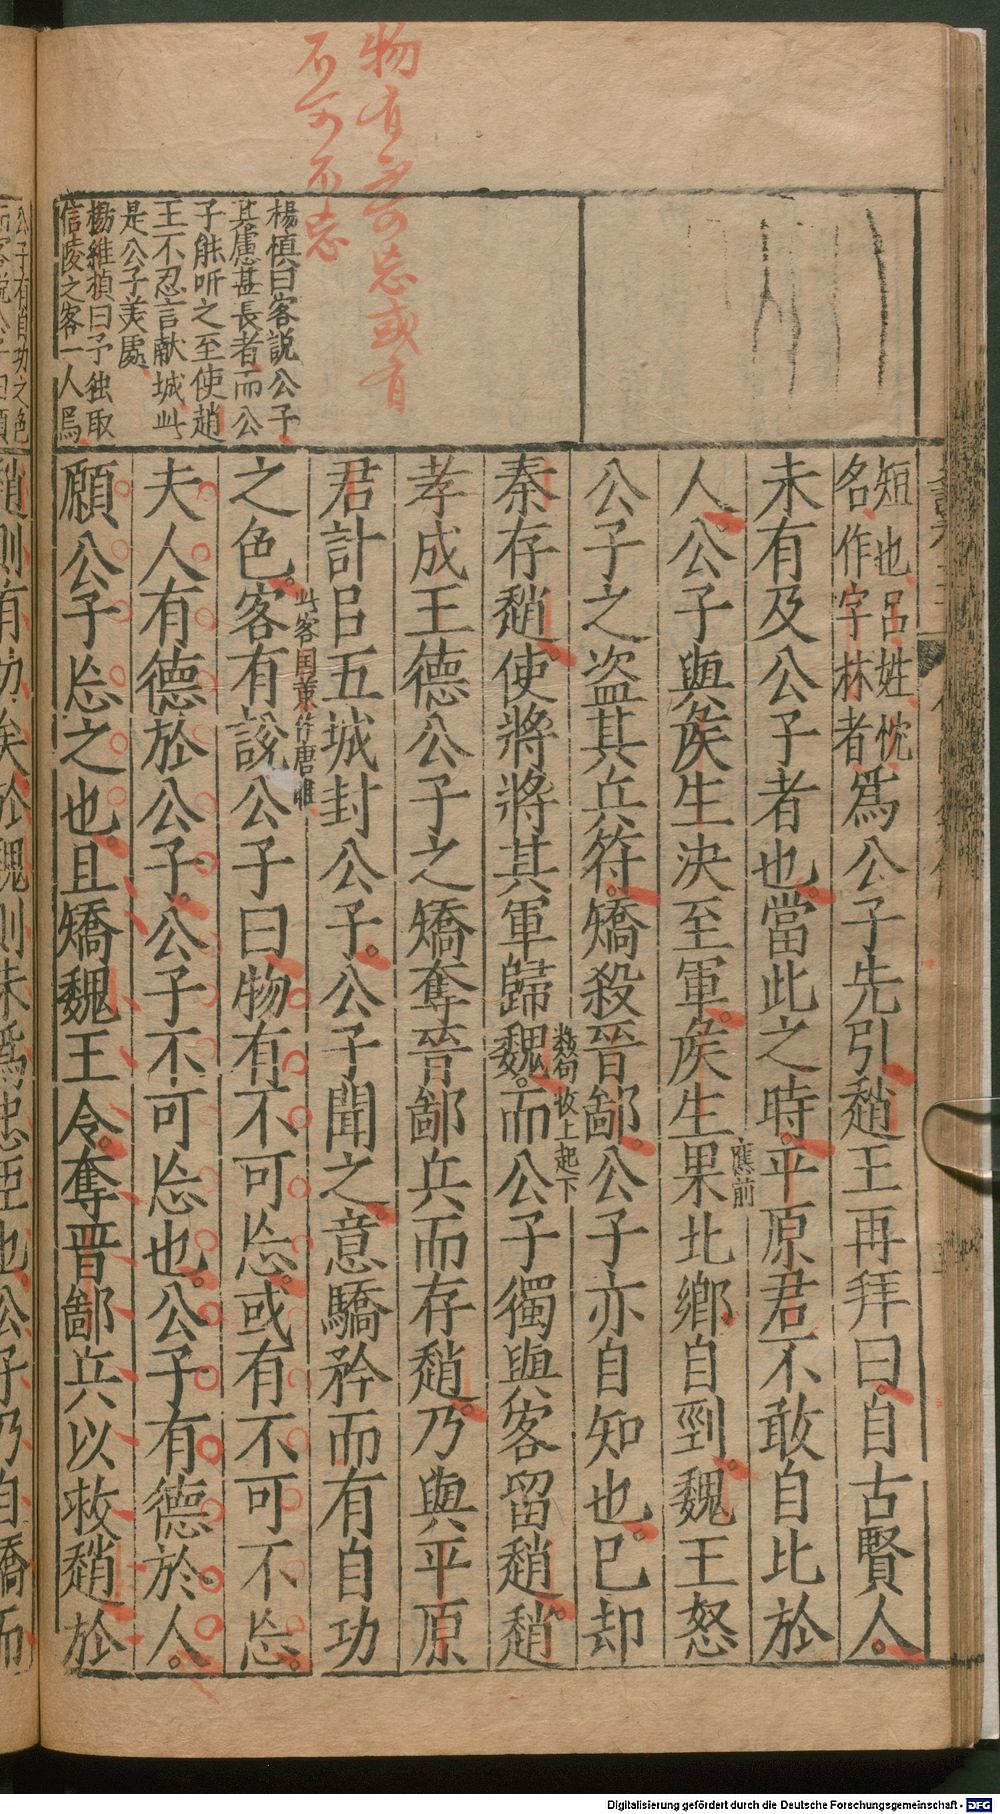 物有不可忘或有
不可不忘
楊慎曰客說公子
其慮甚長者而公
子能听之至使趙
王不忍言献城此
是公子美處
楊維楨曰予独取
信陵之客一人焉
短也呂姓忱
名作字林者
為公子先引趙王再拜曰自古賢人
未有及公子者也當此之時平原君不敢自比於
應前
人公子與矦生決至軍矦生果北鄉自剄魏王怒
公子之盗其兵符矯殺晉鄙公子亦自知也已却
数句收上起下
秦存趙使將將其軍歸魏而公子獨與客留趙趙
孝成王德公子之矯奪晉鄙兵而存趙乃與平原
君計㠯五城封公子公子聞之意驕矜而有自功
此客国策作唐雎
之色客有說公子曰物有不可忘或有不可不忘
夫人有德於公子公子不可忘也公子有德於人
願公子忘之也且矯魏王令奪晋鄙兵以救趙於
趙則有功矣於魏則未為忠臣也公子乃自驕而
Digitalisierung gefördert durch die Deutsche Forschungsgemeinschaft - DFG